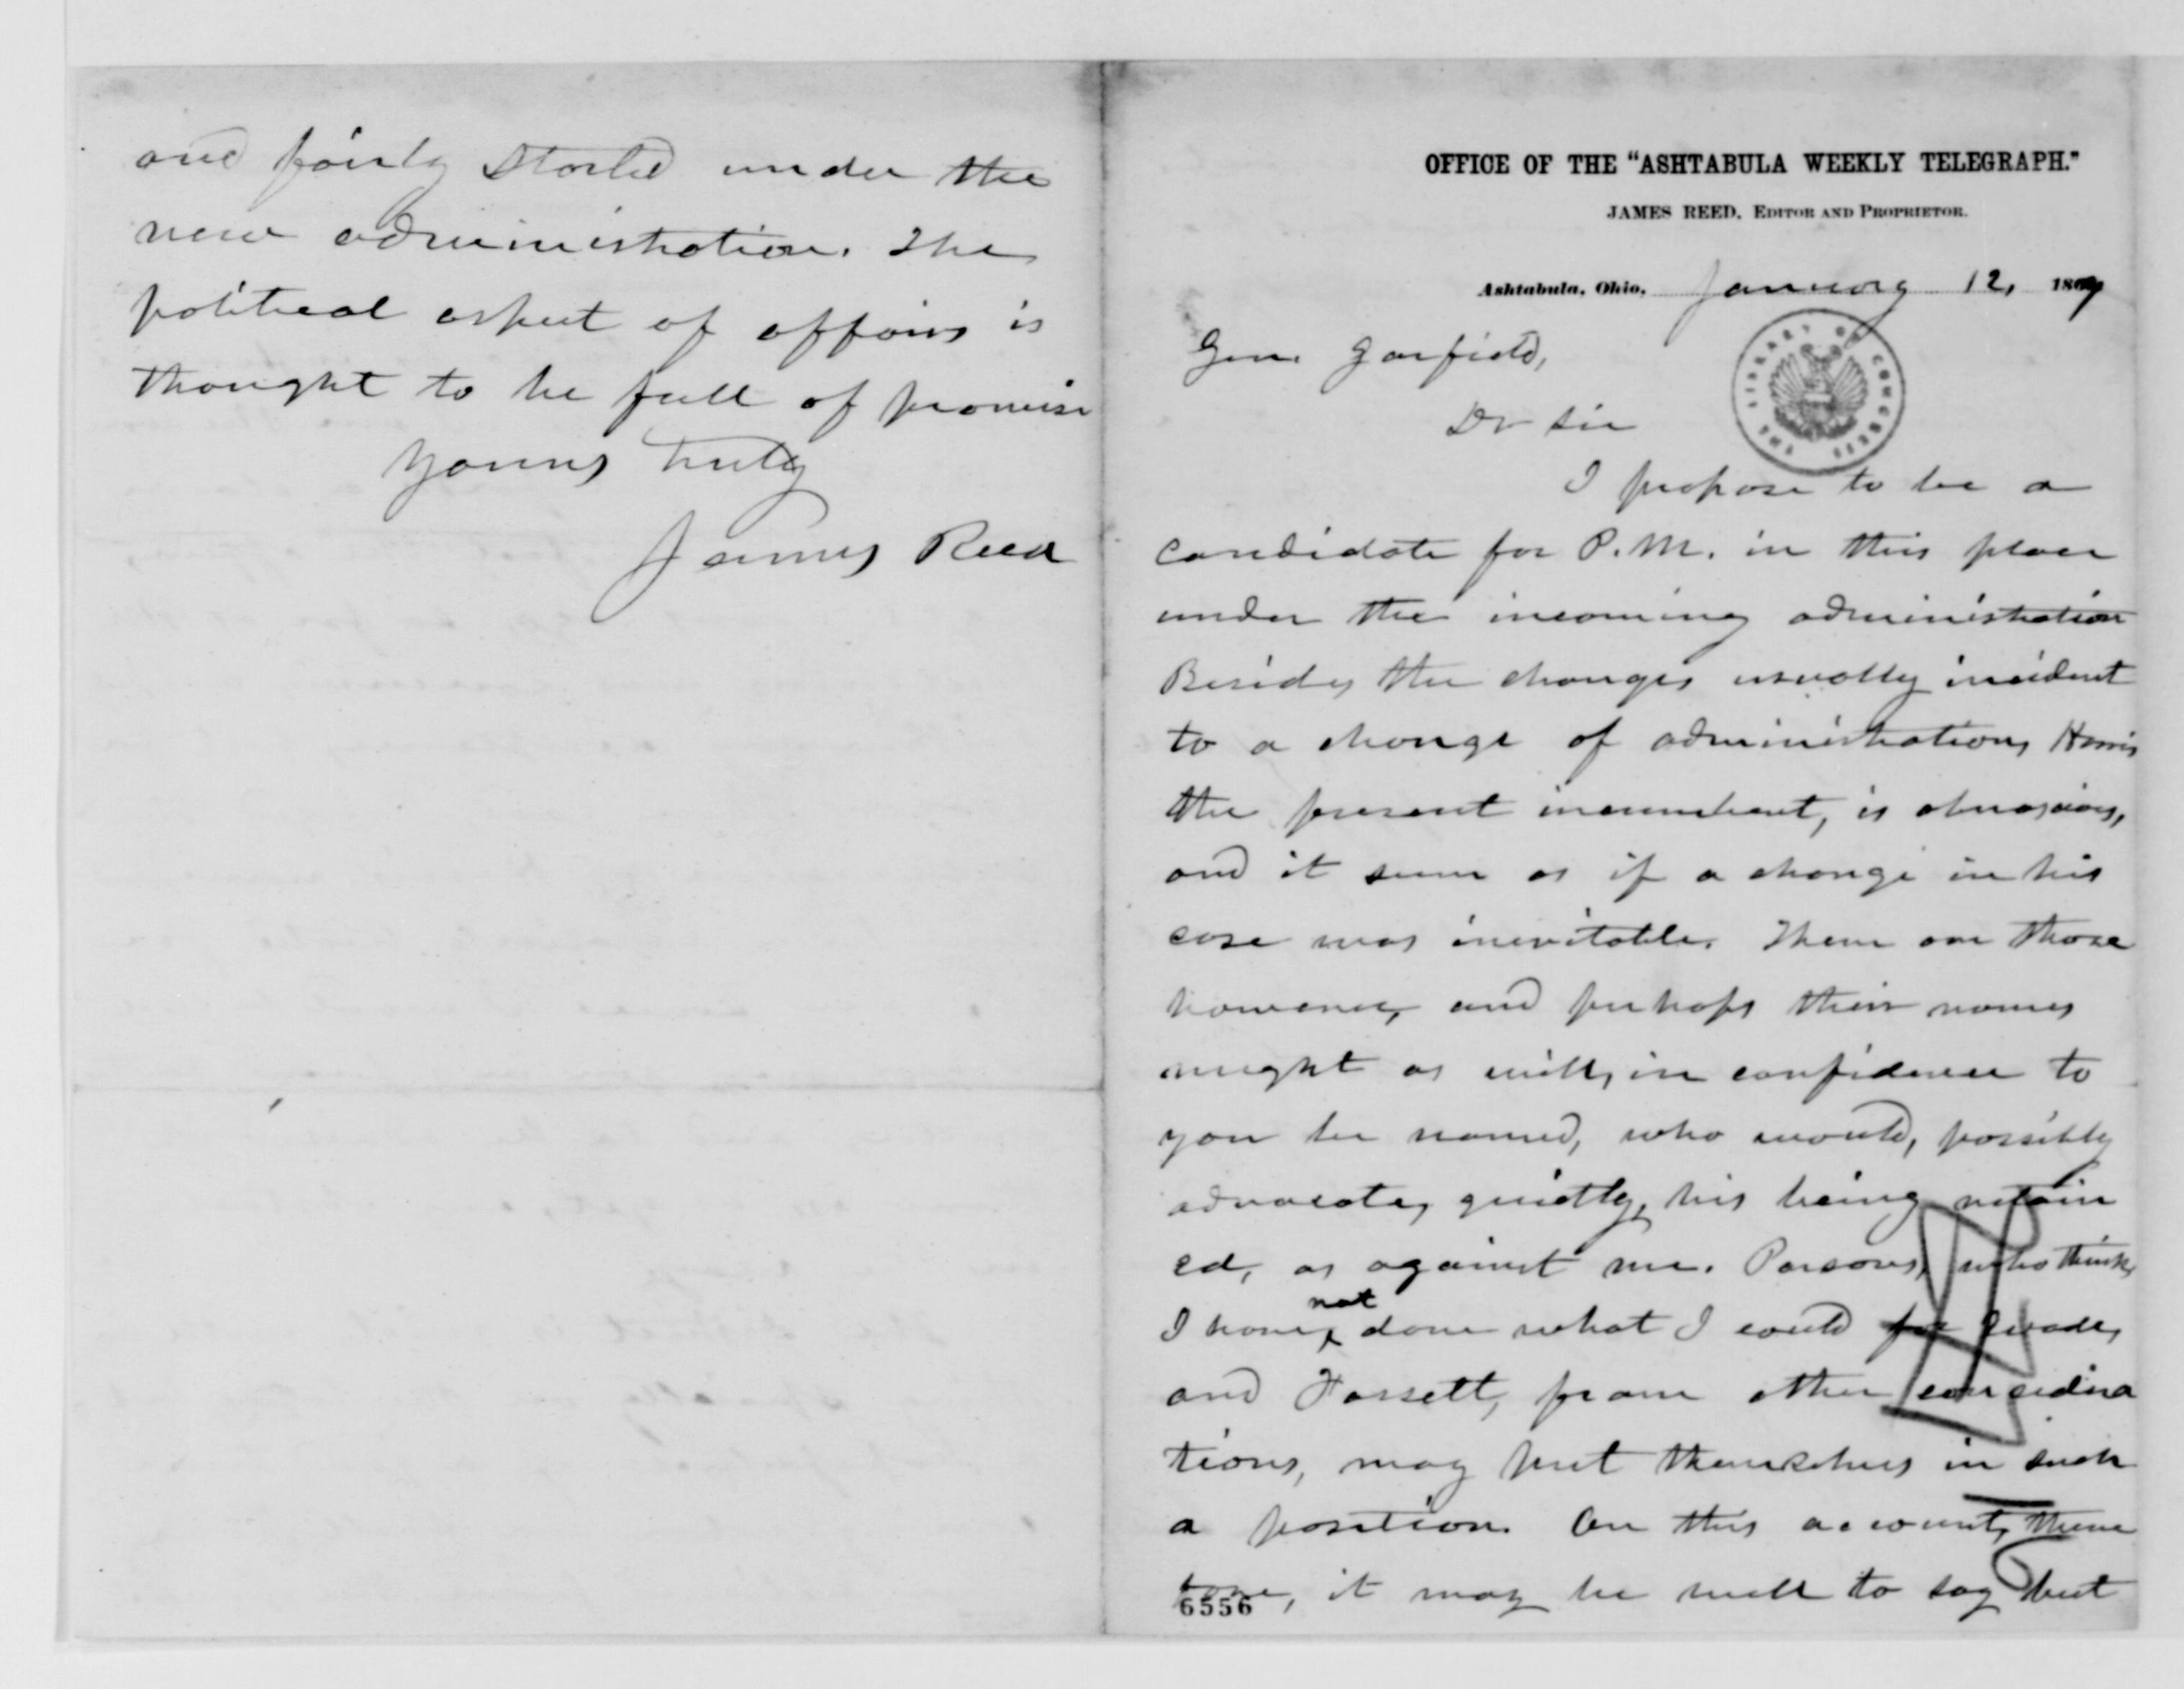 and fairly started under the
new administration. The
political aspect of affairs is
thought to be full of promise
Yours truly
James Reed
OFFICE OF THE "ASHTABULA WEEKLY TELEGRAPH."
JAMES REED, EDITOR AND PROPRIETOR.
Ashtabula, Ohio, January 12, 1869
Gen. Garfield,
THE LIBRARY OF CONGRESS
Dr Sir
I propose to be a
candidate for P.M. in this place
under the incoming administration
Besides the changes usually incident
to a change of administration, Harris
the present incumbent, is obnoxious,
and it seem as if a change in his
case was inevitable. There are those
however, and perhaps their names
might as well, in confidence to
you be named, who would, possibly
advocate, quietly, his being retain
ed, as against me. Parsons, who thinks
I have not done what I could for Wade,
and Fassett, from other considera
tions, may put themselves in such
a position. On this account, there
fore, it may be well to say but
6556